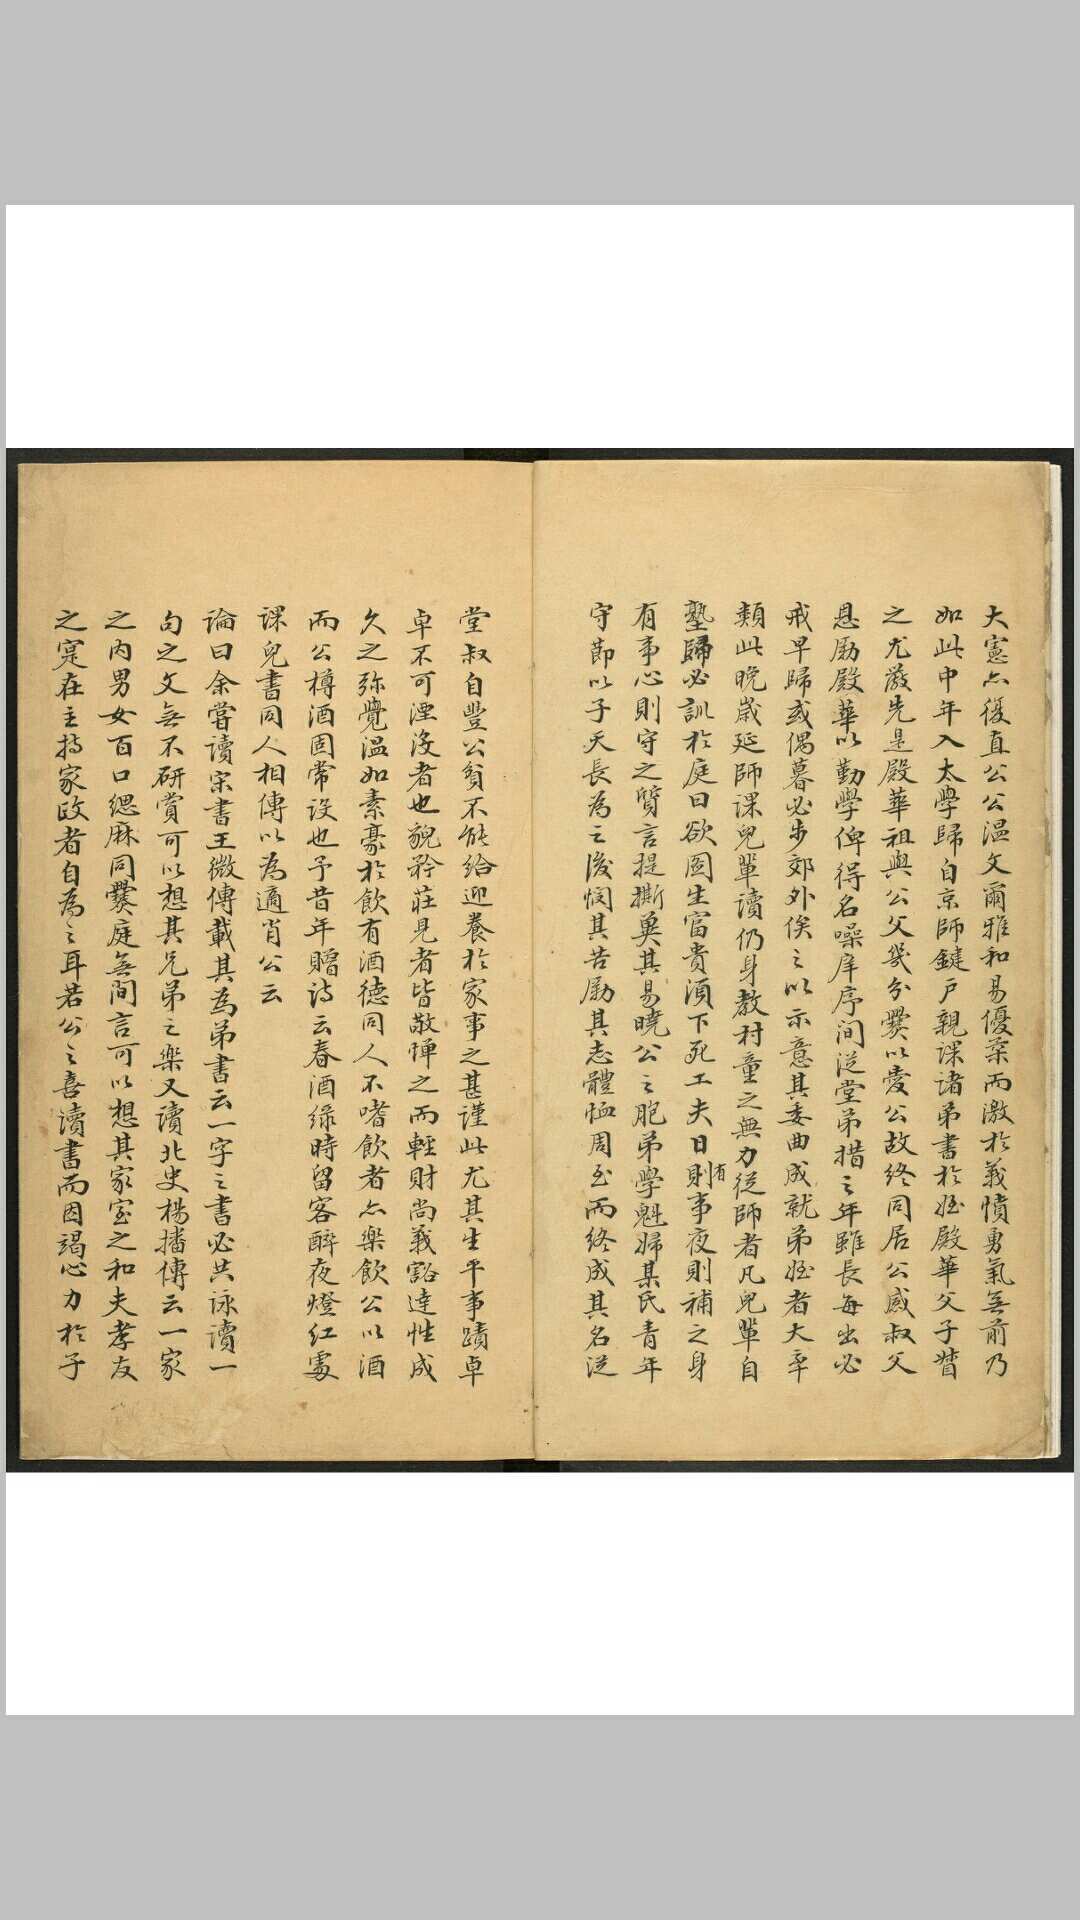 大憲亦復直公公温文爾雅和易優柔而激於義憤勇氣無前乃
如此中年入太學歸自京師鍵戶親課諸弟書於姪殿華父子督
之尤嚴先是殿華祖與公父異分爨以愛公故終同居公感叔父
恩勵殿華以勤學俾得名噪庠序間從堂弟措之年雖長每出必
戒早歸或偶暮必步郊外俟之以示意其委曲成就弟姪者大率
類此晚歲延師課兒輩讀仍身教村童之無力從師者凡兒輩自
塾歸必訓於庭曰欲圖生富貴須下死工夫日有則事夜則補之身
有事心則守之質言提撕冀其易曉公之胞弟學魁婦某氏青年
守節以子天長為之後憫其苦勵其志體恤周至而終成其名從
堂叔自豐公貧不能給迎養於家事之甚謹此尤其生平事蹟卓
卓不可湮沒者也貌矜莊見者皆敬憚之而輕財尚義豁達性成
久之弥覺温如素豪於飲有酒德同人不嗜飲者亦樂飲公以酒
而公樽酒固常設也予昔年贈詩云春酒綠時留客醉夜燈紅處
課兒書同人相傳以為適肖公云
論曰余嘗讀宋書王微傳載其為弟書云一字之書必共詠讀一
句之文無不研賞可以想其兄弟之樂又讀北史楊播傳云一家
之内男女百口緦麻同爨庭無間言可以想其家室之和夫孝友
之寔在主持家政者自為之耳若公之喜讀書而因竭心力於子